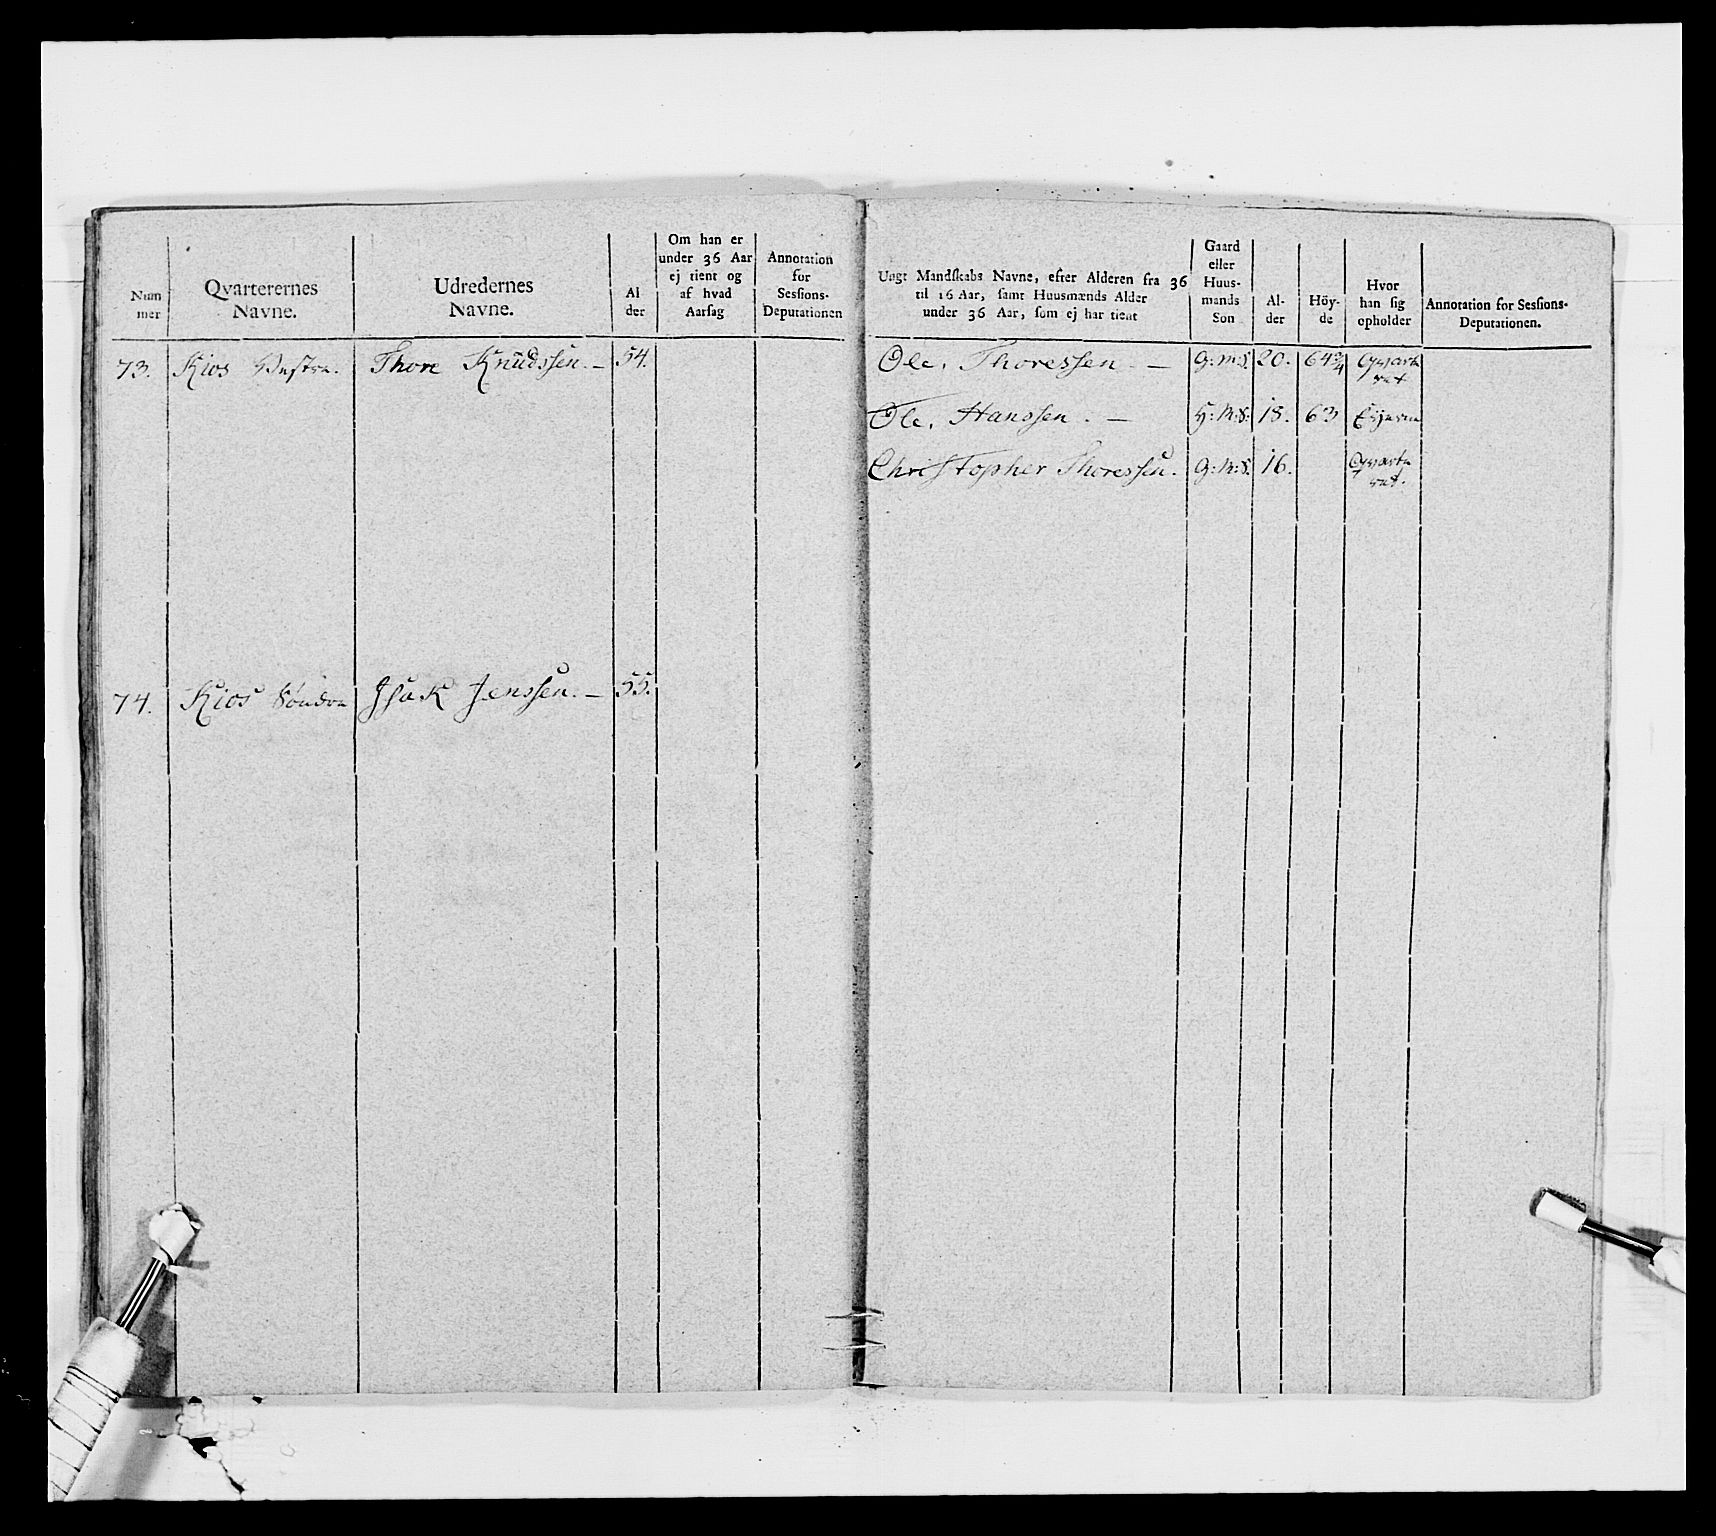 Num
mer
Qvarterernes
Navne.
Udredernes
Navne.
Al
der
Om han er
under 36 Aar
ej tient og
af hvad
Aarsag
Annotation
for
Sessions-
Deputationen
Ungt Mandskabs Navne, efter Alderen fra 36
til 16 Aar, samt Huusmænds Alder
under 36 Aar, som ej har tient
Gaard
eller
Huus-
mands
Son
Al-
der
Höy-
de
Hvor
han sig
opholder
Annotation for Sessions-
Deputationen.
73. Kios Vestre. Thore Knudssen. – 54. Ole. Thoressen. – G:m:S. 20. 64 3/4 Qvarte
ret
Ole. Hanssen. – H:M:S: 18. 63
Christopher Thoressen. G:M:S. 16. Qvarte
ret.
74. Kios Söndre Jsak Jenssen. – 55.